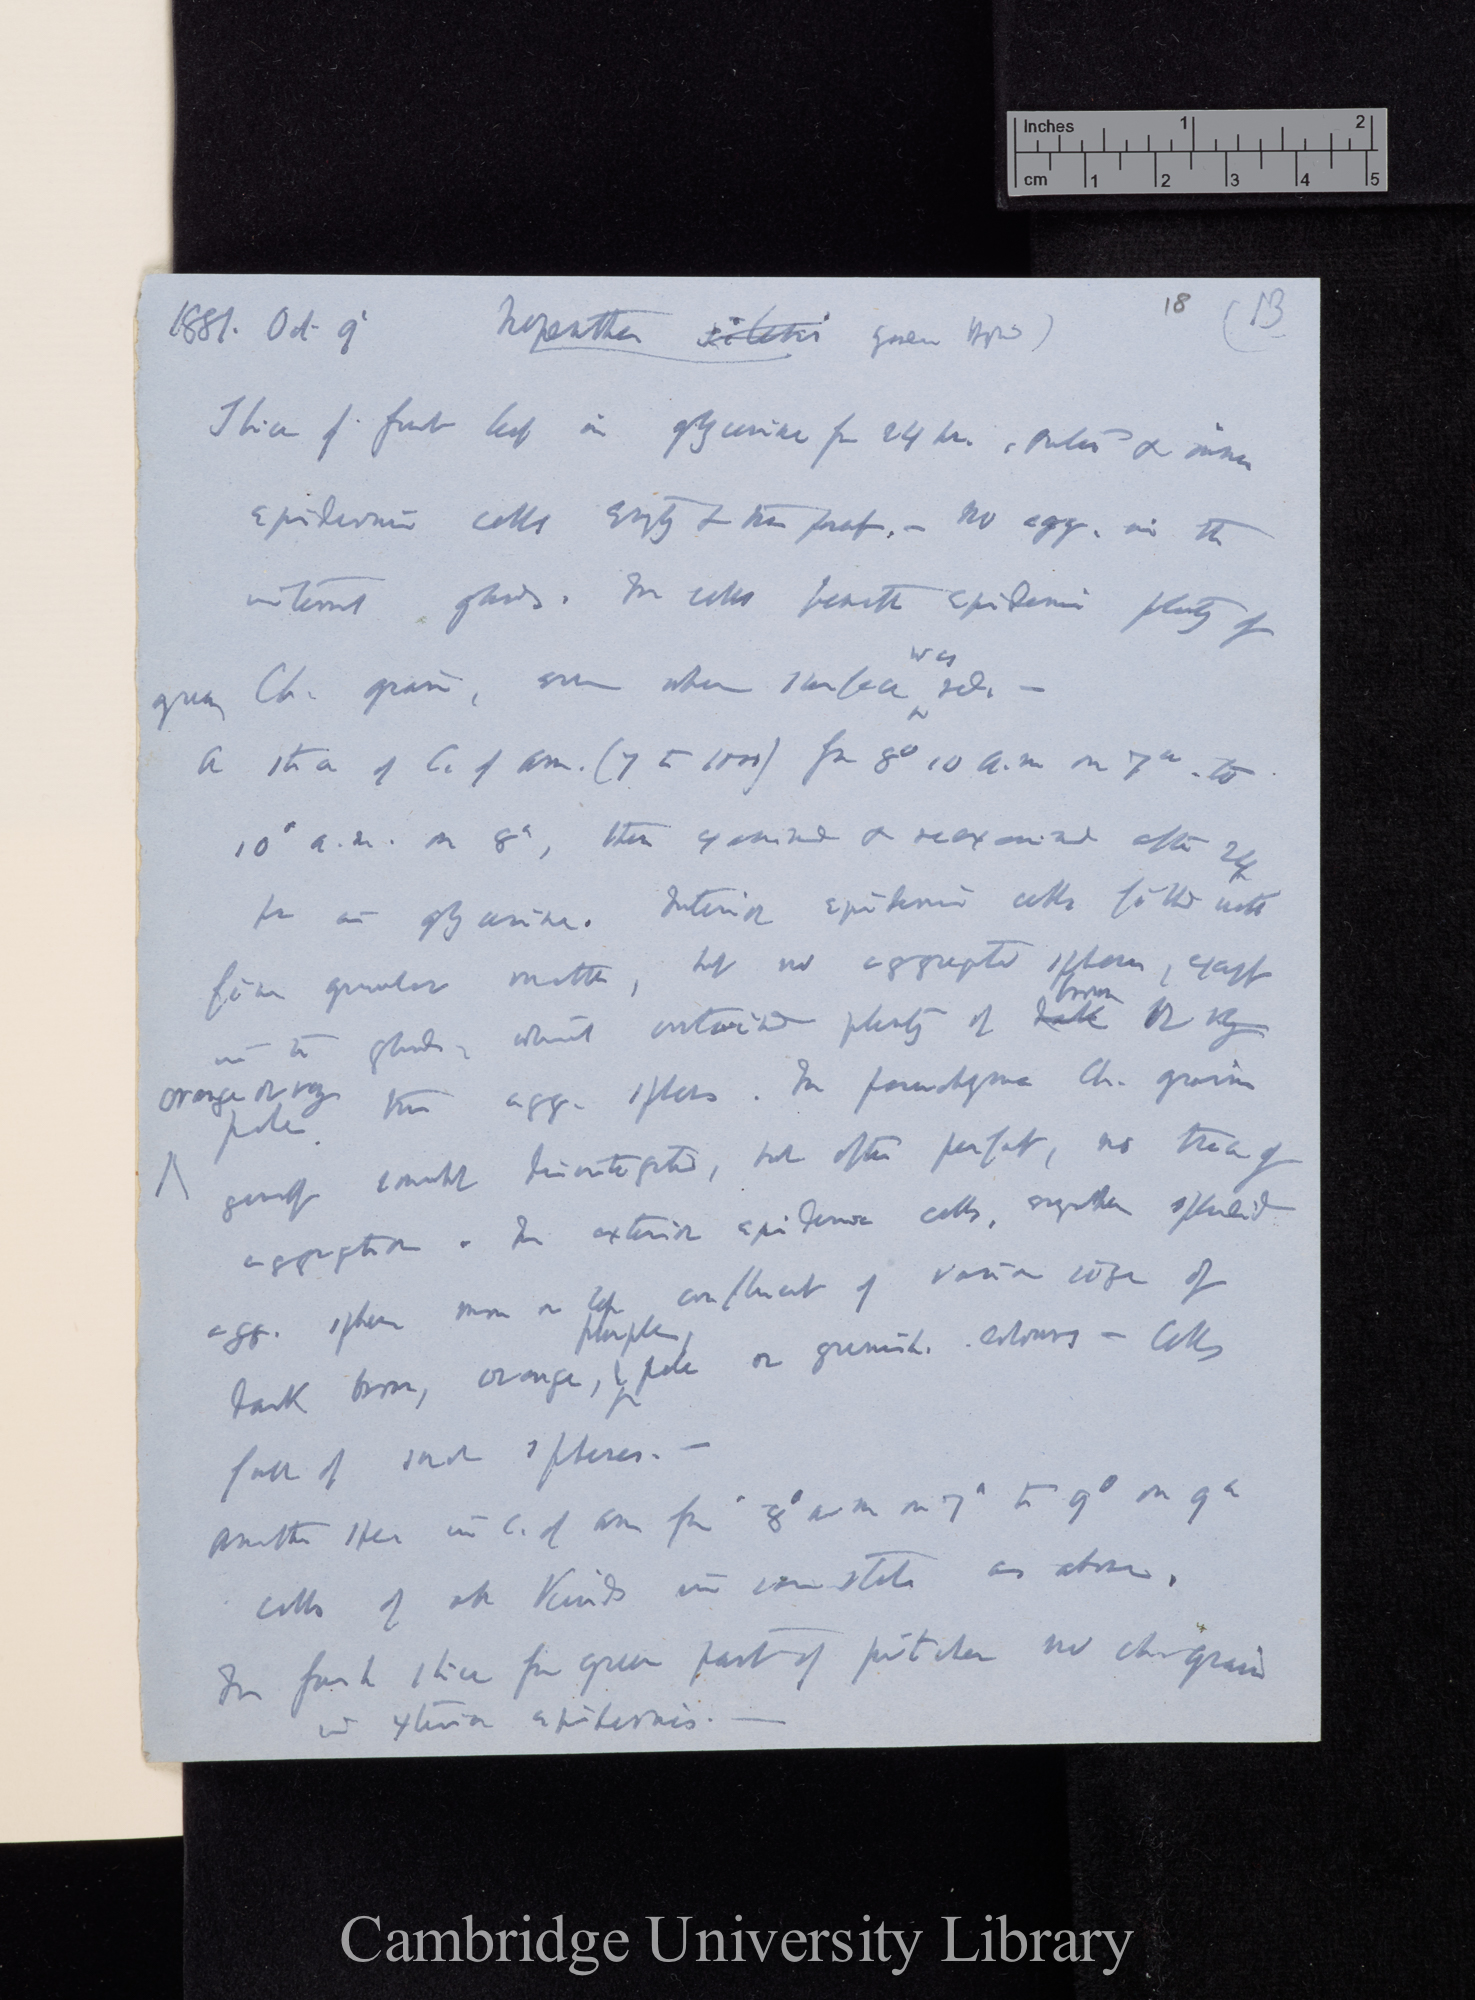 Inches 1 2
cm 1 2 3 4 5
18 (13
1881. Oct. 9 Nepenthes
Slice of fresh leaf in glycerine for 24 hrs. outer & inner
epidermic cells empty & transparent. — No agg. in the
internal glands. In cells beneath epidermis plenty of
green Ch. grains, even when surface was red. —
A slice of C. of am. (7 to 1000) for 8° 10 a.m on 7th to
10° a.m. on 8th, then examined & reexamined after 24
hr in glycerine. Interior epidermic cells filled with
fine granular matter, but no aggregated spheres, except
in the glands, which contained plenty of dark brown or very
orange or very pale
this agg. spheres. In parenchyma Ch. grains
generally somewhat disintegrated, but often perfect, no trace of
aggregation. In exterior epidermic cells, splendid
agg. spheres more or less confluent of various sizes of
dark brown, orange, purple, pale or greenish colours — Cells
full of such spheres. —
Another slice in C. of am for 8° a.m on 7th to 9° on 9th
cells of all Kinds in same state as above.
In fresh slice from green part of pitcher no ch. grains
in exterior epidermis. —
Cambridge University Library